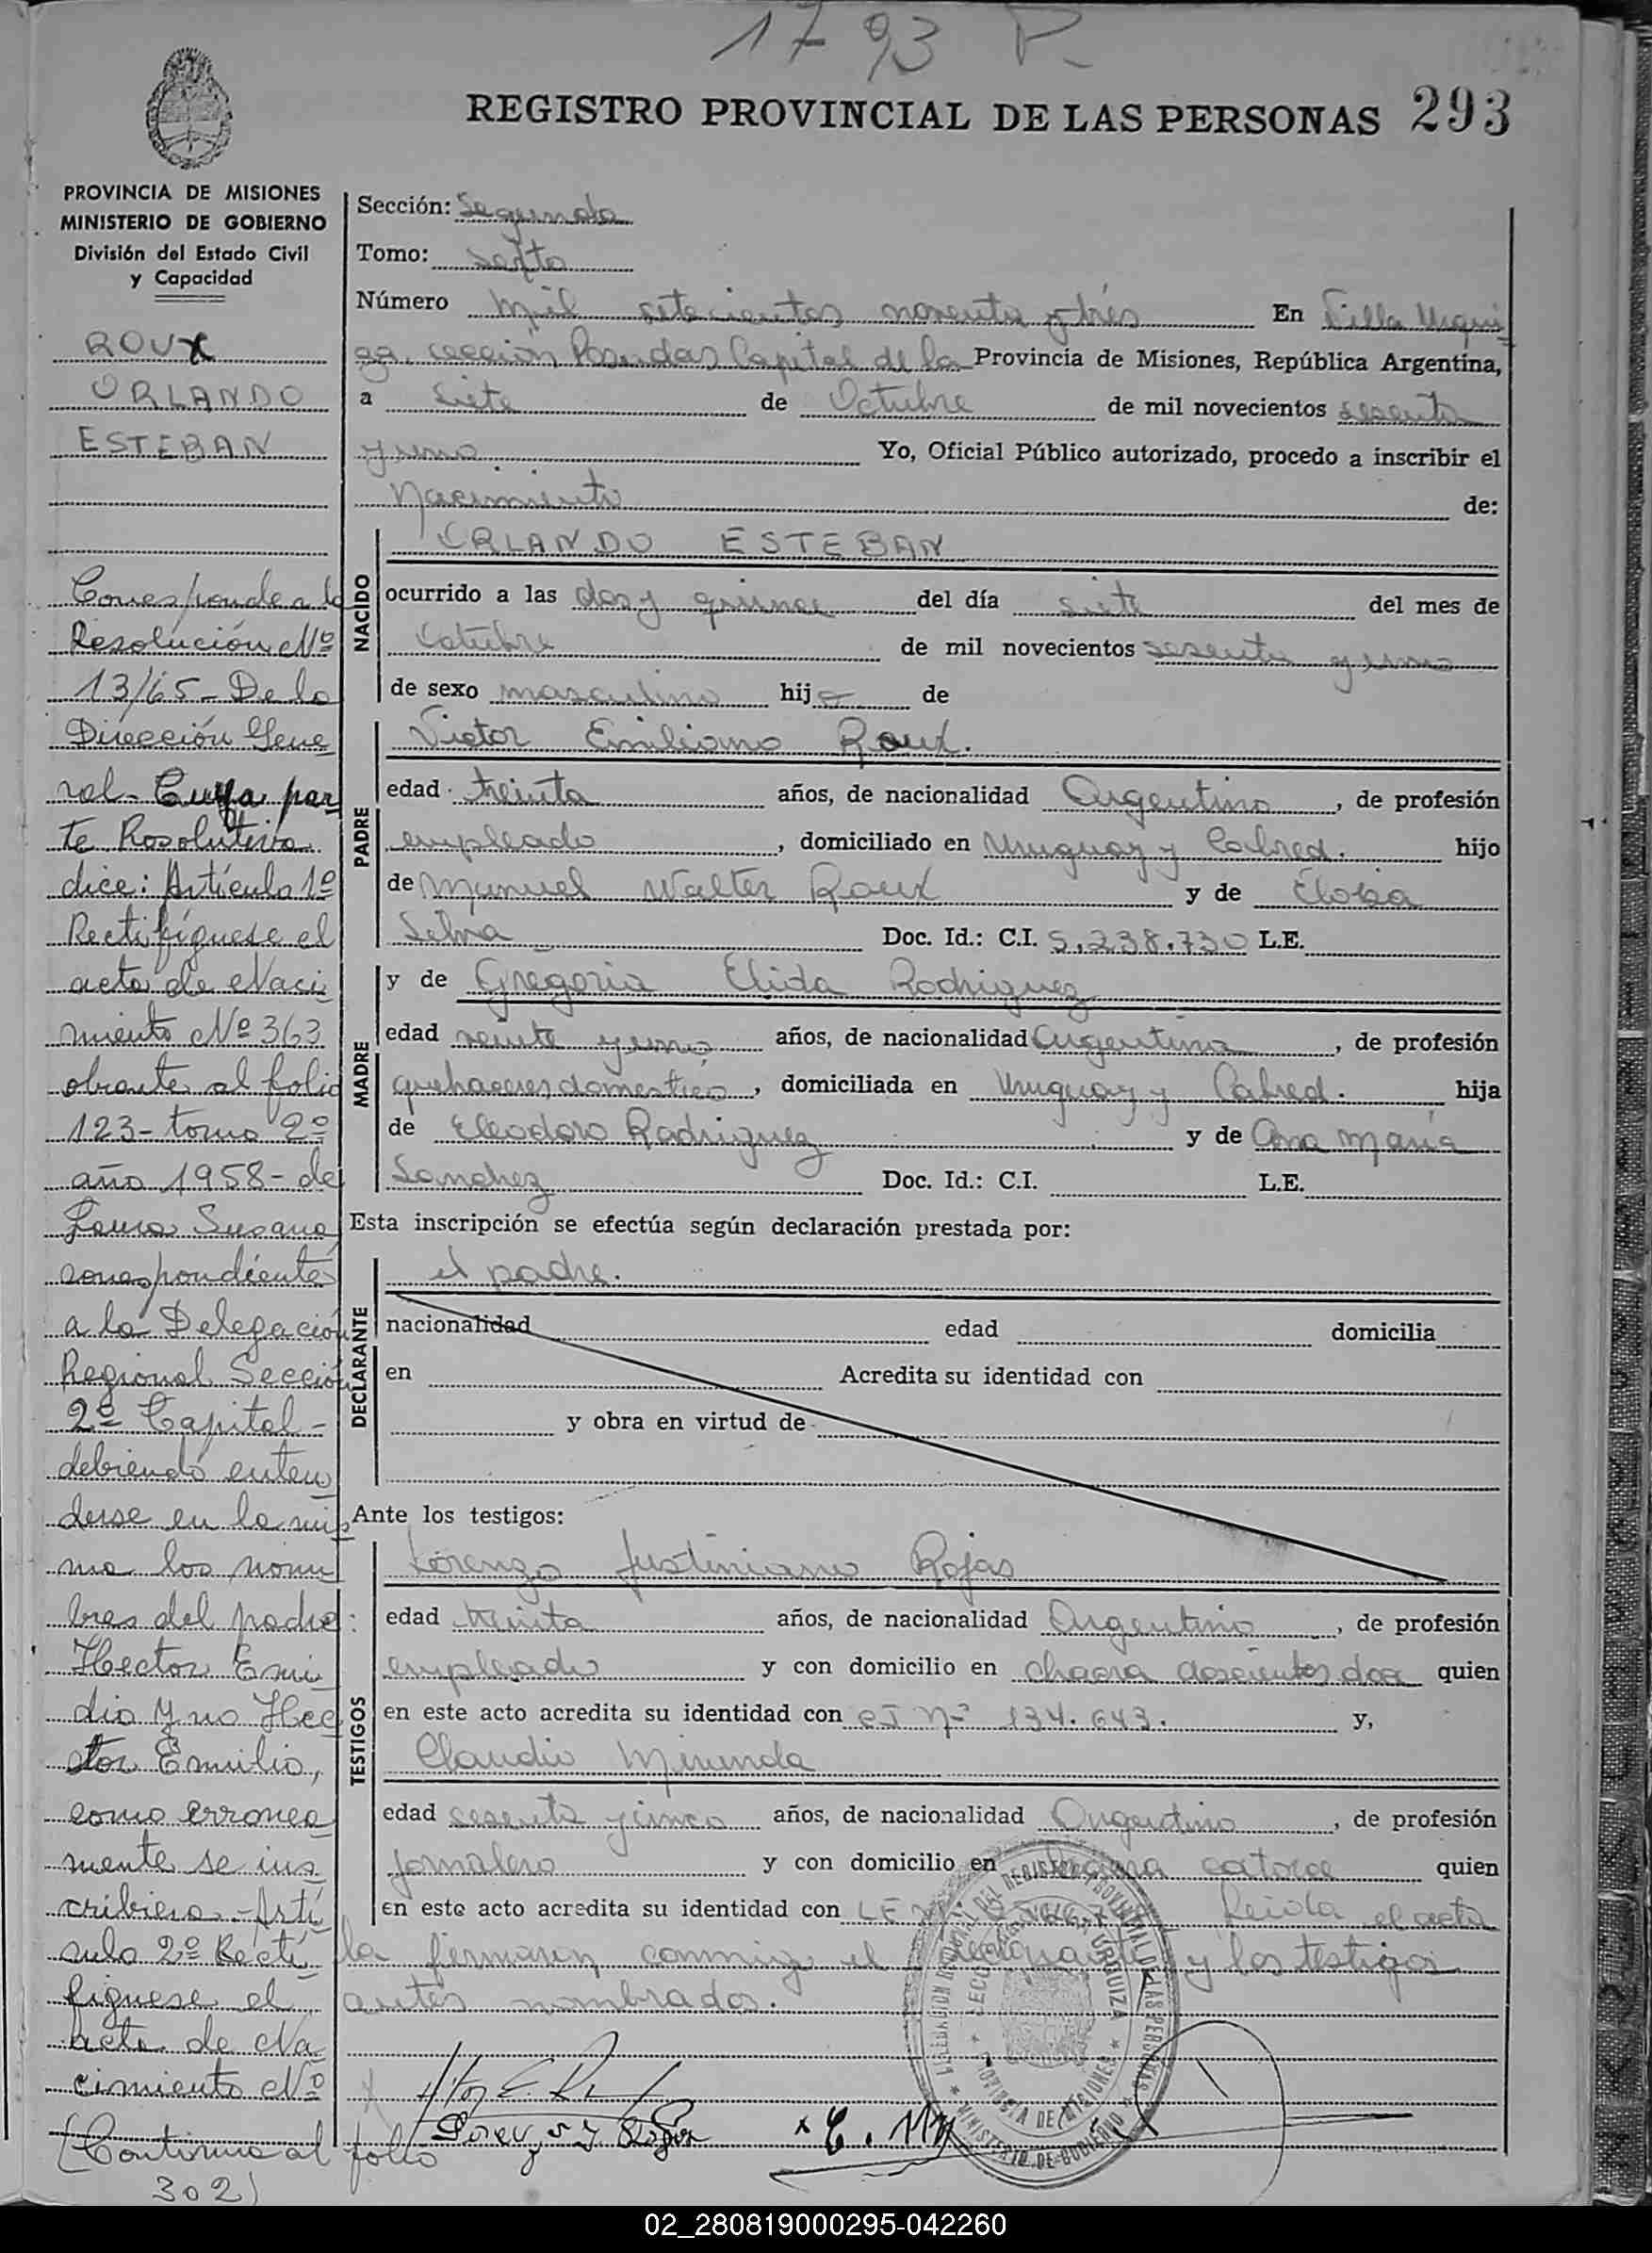 1793 P
REGISTRO PROVINCIAL DE LAS PERSONAS 293
PROVINCIA DE MISIONES
MINISTERIO DE GOBIERNO
División del Estado Civil
y Capacidad
ROUX
ORLANDO
ESTEBAN
Corresponde a la
Resolución Nº
13/65 - De la
Dirección Gene
ral - Cuya par
te Resolutiva
dice: Artículo 1º
Rectifíquese el
acta de Naci
miento Nº 363
obrante al folio
123 - tomo 2º
año 1958 - de
Susana
correspondiente
a la Delegación
Regional Sección
2º Capital -
debiendo enten
derse en la mis
ma los nom
bres del padre:
Hector Emi
dio y no Hec
tor Emilio,
como erronea
mente se ins
cribiera - Artí
culo 2º Rectí
fiquese el
acta de Na
cimiento Nº
(Continua al folio
302)
Sección: Segunda
Tomo: sexto
Número mil setecientos noventa y tres En Villa Urqui
za. sección Posadas Capital de la Provincia de Misiones, República Argentina,
a siete de Octubre de mil novecientos sesenta
y uno. Yo, Oficial Público autorizado, procedo a inscribir el
Nacimiento de:
NACIDO
ORLANDO ESTEBAN
ocurrido a las dos y quince del día siete del mes de
Octubre de mil novecientos sesenta y uno
de sexo masculino hijo de
PADRE
Victor Emiliano Roux.
edad treinta años, de nacionalidad Argentino, de profesión
empleado, domiciliado en Uruguay y Cabred. hijo
de Manuel Walter Roux y de Eloisa
Silva Doc. Id.: C.I. 5.238.730 L.E.
MADRE
y de Gregoria Elida Rodriguez
edad veinte y uno años, de nacionalidad Argentina, de profesión
quehaceres domestico, domiciliada en Uruguay y Cabred. hija
de Eleodoro Rodriguez y de Ana Maria
Sanchez Doc. Id.: C.I. L.E.
Esta inscripción se efectúa según declaración prestada por:
DECLARANTE
el padre.
nacionalidad edad domicilia
en Acredita su identidad con
y obra en virtud de
Ante los testigos:
TESTIGOS
Lorenzo Justiniano Rojas
edad treinta años, de nacionalidad Argentino, de profesión
empleado y con domicilio en chacra doscientos dos quien
en este acto acredita su identidad con CI Nº 134.643. y,
Claudio Miranda
edad sesenta y cinco años, de nacionalidad Argentino, de profesión
jornalero y con domicilio en chacra catorce quien
en este acto acredita su identidad con LE Leida el acta
la firman conmigo el declarante y los testigos
antes nombrados.
02_280819000295-042260